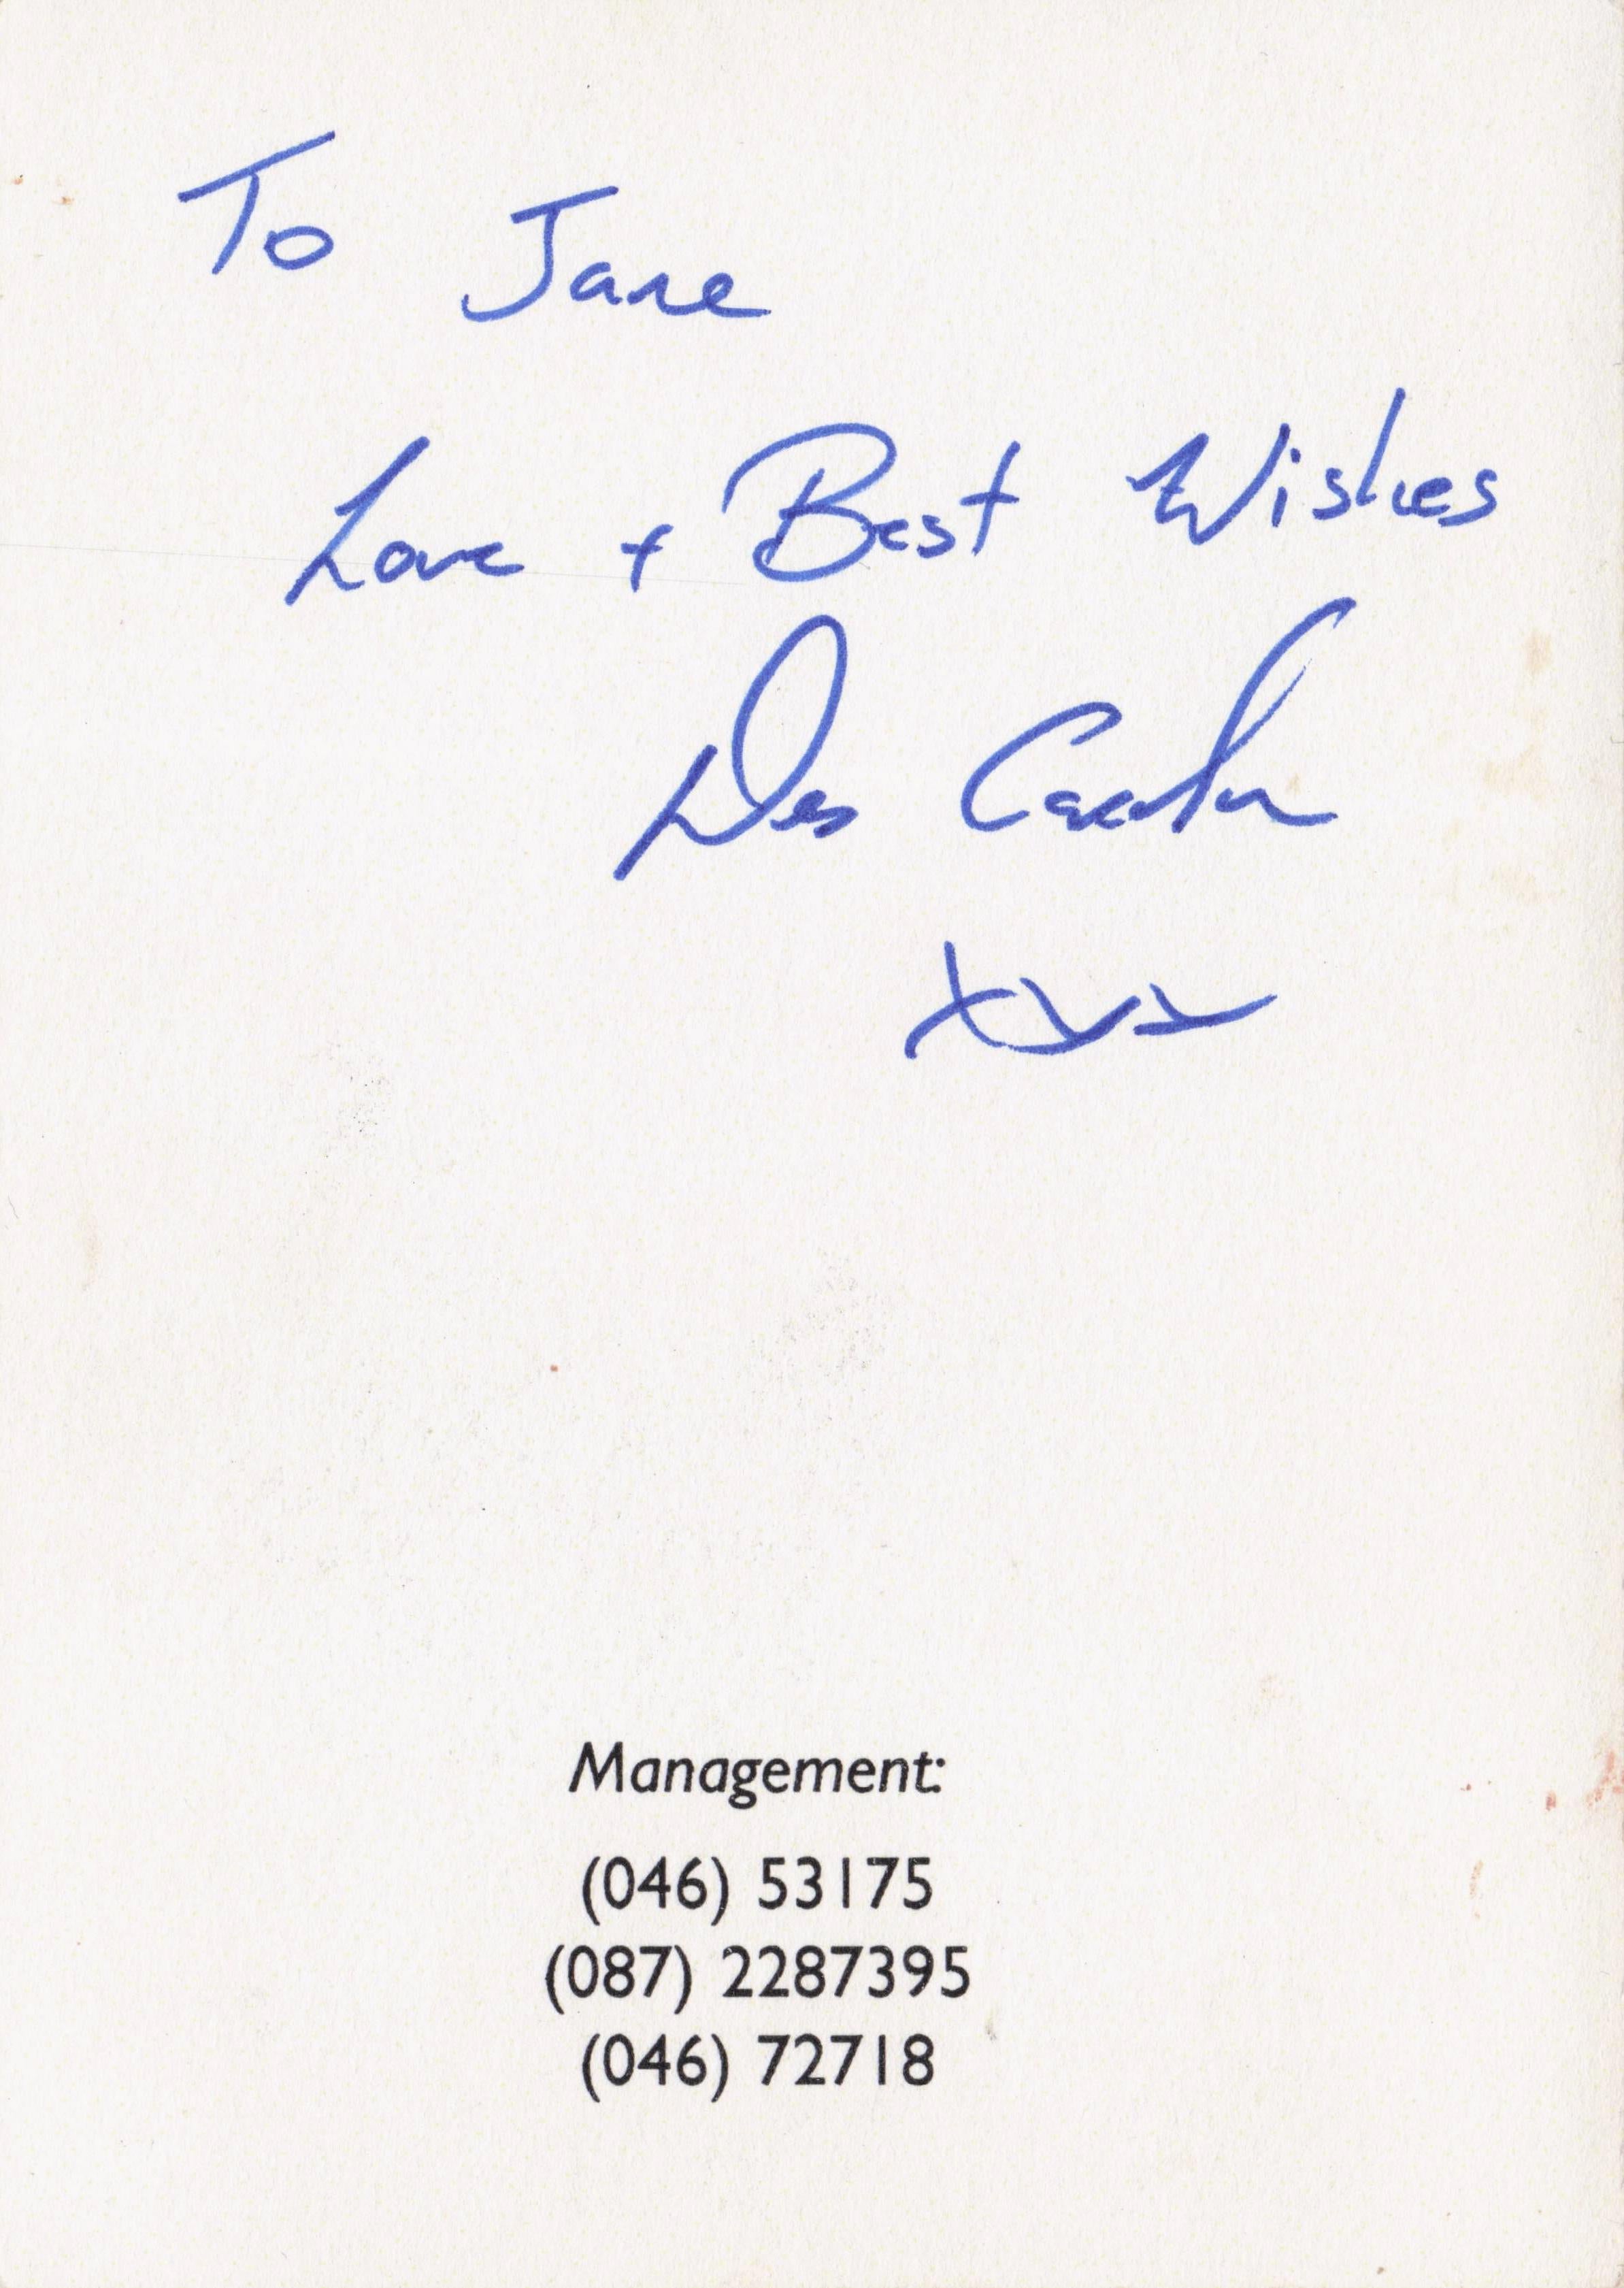 To Jane
Love + Best Wishes
Des
xxx
Management:
(046) 53175
(087) 2287395
(046) 72718